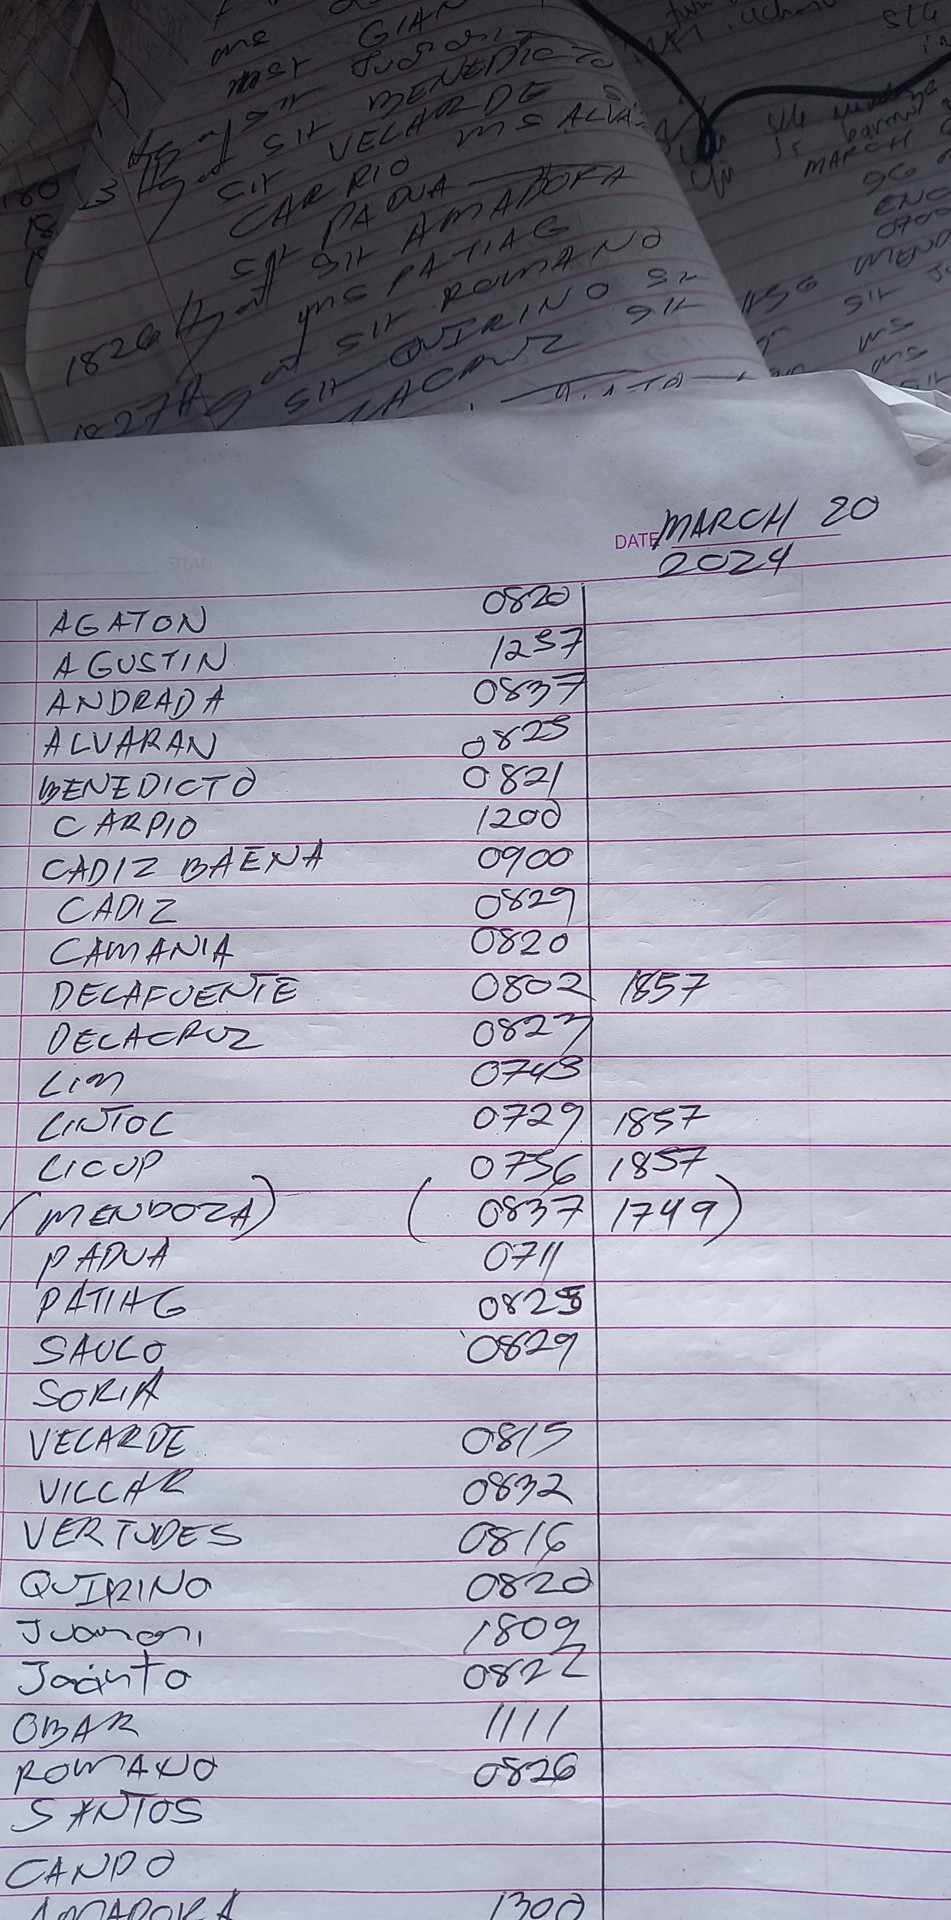 GIAN
SIR BENEDICTO
SIR VELARDE
CARPIO MS ALVA
SIR PADUA
1826H SIR AMADORA
MS PATIAG
1827H SIR ROMANO
SIR QUIRINO SIR
MARCH
DATE MARCH 20
2024
AGATON 0820
AGUSTIN 1257
ANDRADA 0837
ALVARAN 0825
BENEDICTO 0821
CARPIO 1200
CADIZ BAENA 0900
CADIZ 0829
CAMANIA 0820
DELAFUENTE 0802 1857
DELACRUZ 0827
LIM 0745
LINTOC 0729 1857
LICUP 0756 1857
(MENDOZA) (0837 1749)
PADUA 0711
PATIAG 0825
SAULO 0829
SORIA
VELARDE 0815
VILLAR 0832
VERTUDES 0816
QUIRINO 0820
Juanoni 1809
Jacinto 0822
OBAR 1111
ROMANO 0826
SANTOS
CANDO
AMADORA 1300